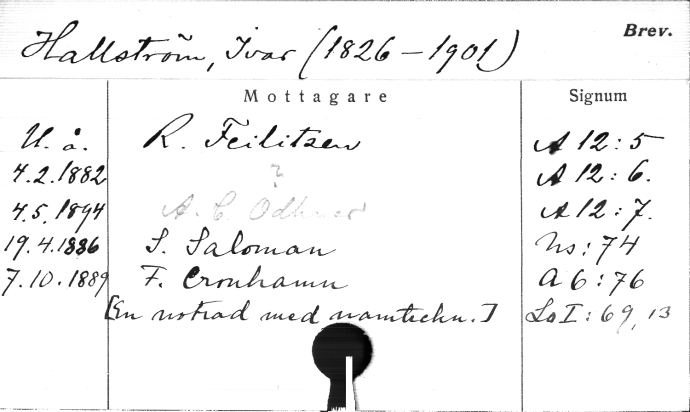 Hallström, Ivar (1826–1901) Brev.
Mottagare Signum
U. å. R. Feilitzen A 12:5
4.2.1882 ? A 12:6.
4.5.1894 A. C. Odhner A 12:7.
19.4.1886 S. Saloman Ns:74
7.10.1889 F. Cronhamn A 6:76
[En notrad med namtechn.] La I:69,13